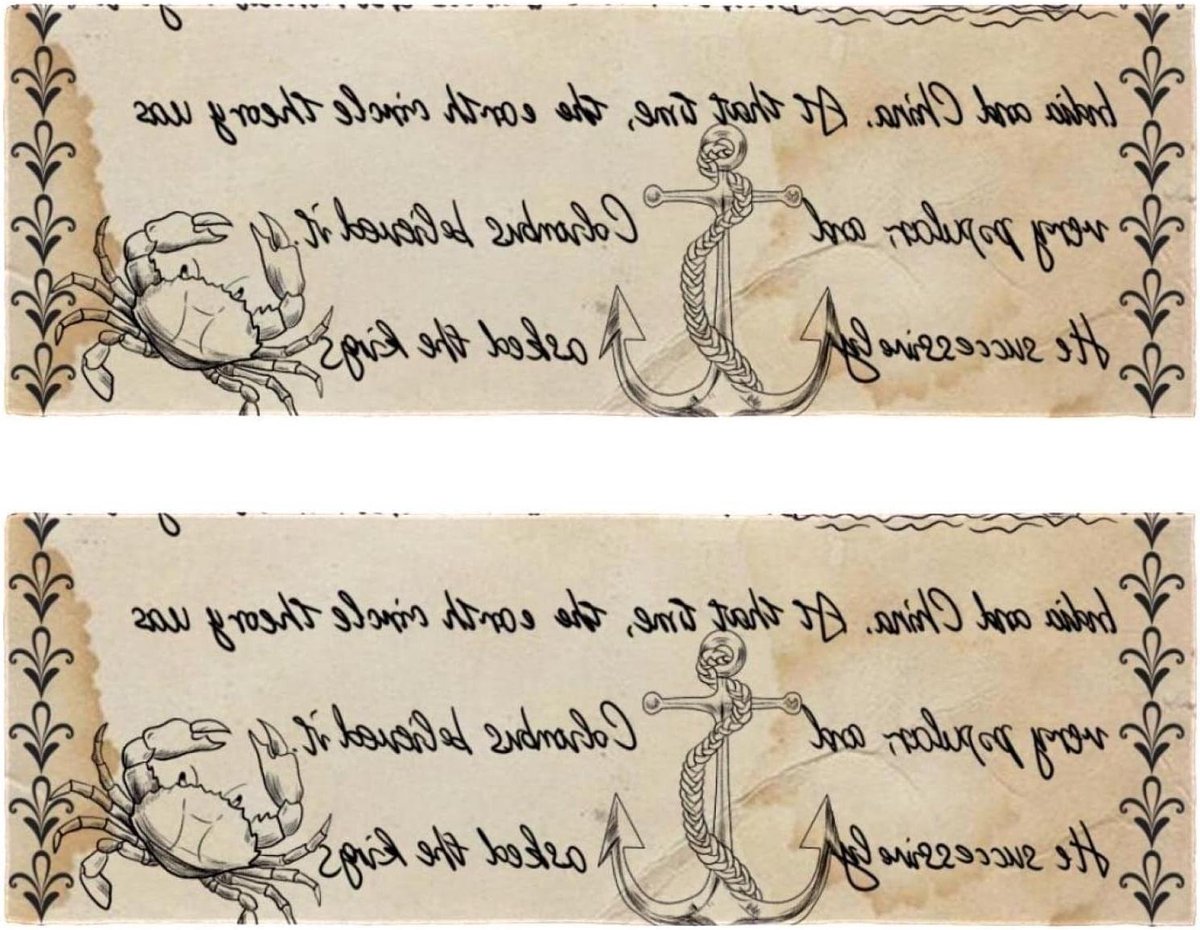 India and China. At that time, the earth circle theory was
very popular, and Columbus believed it.
He successively asked the kings
India and China. At that time, the earth circle theory was
very popular, and Columbus believed it.
He successively asked the kings